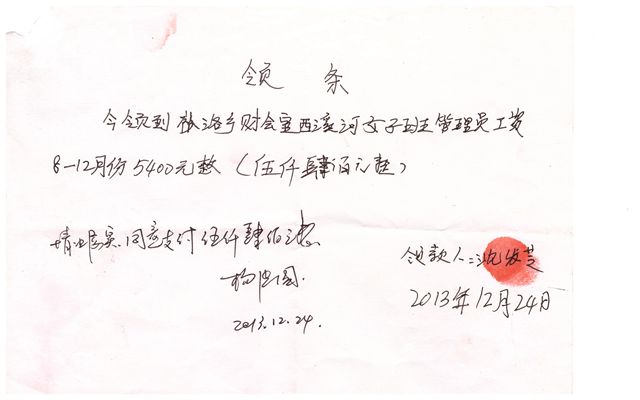 领 条
今领到 松洛乡财会室西溪河女子班主管理员工资
8—12月份5400元整（伍仟肆佰元整）
情况属实.同意支付伍仟肆佰元整
2013.12.24.
领款人:沈发芝
2013年12月24日